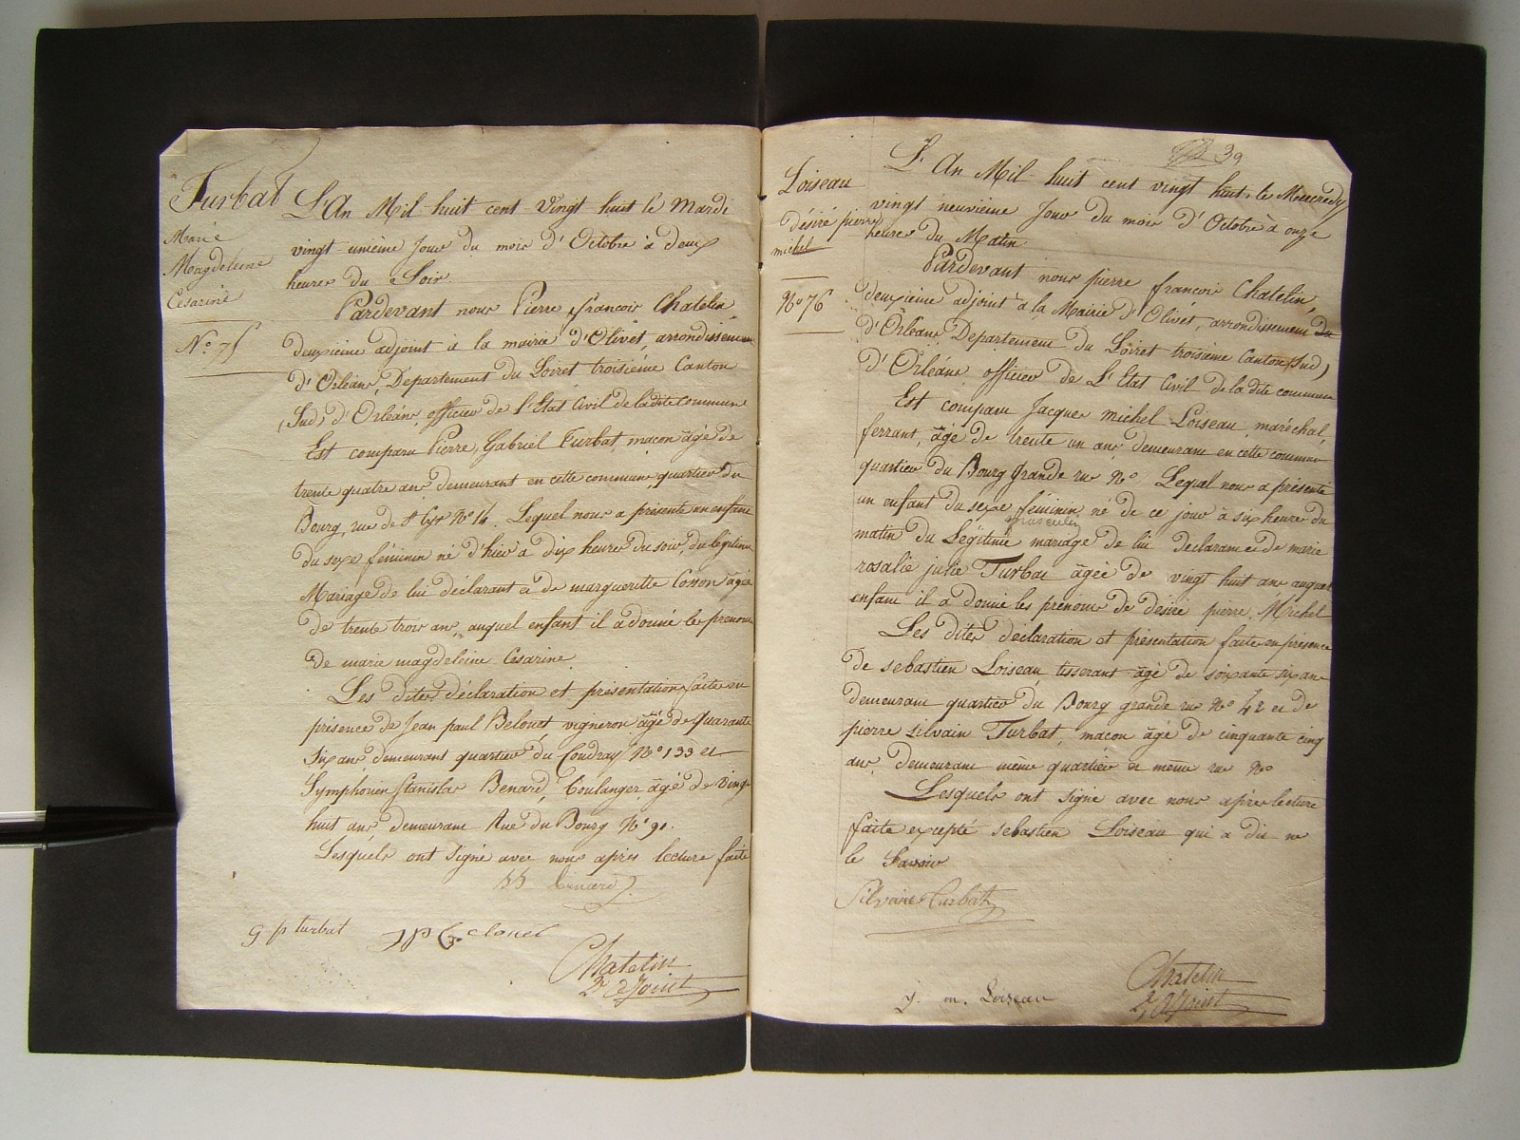 Turbat
Marie
Magdeleine
Cesarine
N.° 75
L'An Mil huit cent Vingt huit le Mardi
vingt unième Jour du mois d'Octobre à deux
heures du Soir.
Pardevant nous Pierre françois Chatelin,
deuxième adjoint à la mairie d'Olivet, arrondissement
d'Orléans, Departement du Loiret troisième Canton
(Sud) d'Orléans, officier de l'Etat Civil de la dite commune
Est comparu Pierre Gabriel Turbat, maçon âgé de
trente quatre ans demeurant en cette commune, quartier du
Bourg, rue de St Cyr N° 16. Lequel nous a présenté un enfant
du sexe féminin né d'hier à dix heures du soir, du légitime
Mariage de lui déclarant & de margueritte Cosson âgée
de trente trois ans, auquel enfant il a donné les prenoms
de marie magdeleine Cesarine.
Les dites déclaration et présentation faites en
présence de Jean paul Belouet, vigneron âgé de quarante
Six ans, demeurant quartier du Coudray N° 133 et
Symphorien Stanislas Benard, boulanger, âgé de Vingt
huit ans, demeurant Rue du Bourg N° 91.
Lesquels ont Signé avec nous après lecture faite
SS benard
g p turbat
Chatelin
2e adjoint
39
Loiseau
désiré pierre
michel
N° 76
L'An Mil huit cent vingt huit le Mercredy
vingt neuvieme Jour du mois d'Octobre à onze
heures du Matin
Pardevant nous pierre françois Chatelin,
deuxieme adjoint à la Mairie d'Olivet, arrondissement du
d'Orleans, Departement du Loiret troisième Canton (Sud)
d'Orléans officier de L'Etat Civil de la dite commune
Est comparu Jacques michel Loiseau, maréchal,
ferrant, âgé de trente un ans, demeurant en cette commune
quartier du Bourg grande rue N° Lequel nous a présenté
un enfant du sexe féminin né de ce jour à six heures du
masculin
matin du Légitime mariage de lui declarant & de marie
rosalie julie Turbat âgée de vingt huit ans auquel
enfant il a donné les prénoms de désiré pierre Michel
Les dites déclaration et présentation faite en présence
de sebastien Loiseau, tisserant âgé de soixante six ans
demeurant quartier du Bourg grande rue N° 42 et de
pierre silvain Turbat, maçon âgé de cinquante cinq
ans, demeurant même quartier et même rue N°
Lesquels ont Signé avec nous après lecture
faite excepté sebastien Loiseau qui a dit ne
le Savoir
Silvain Turbat
j. m. Loiseau
Chatelin
2e adjoint